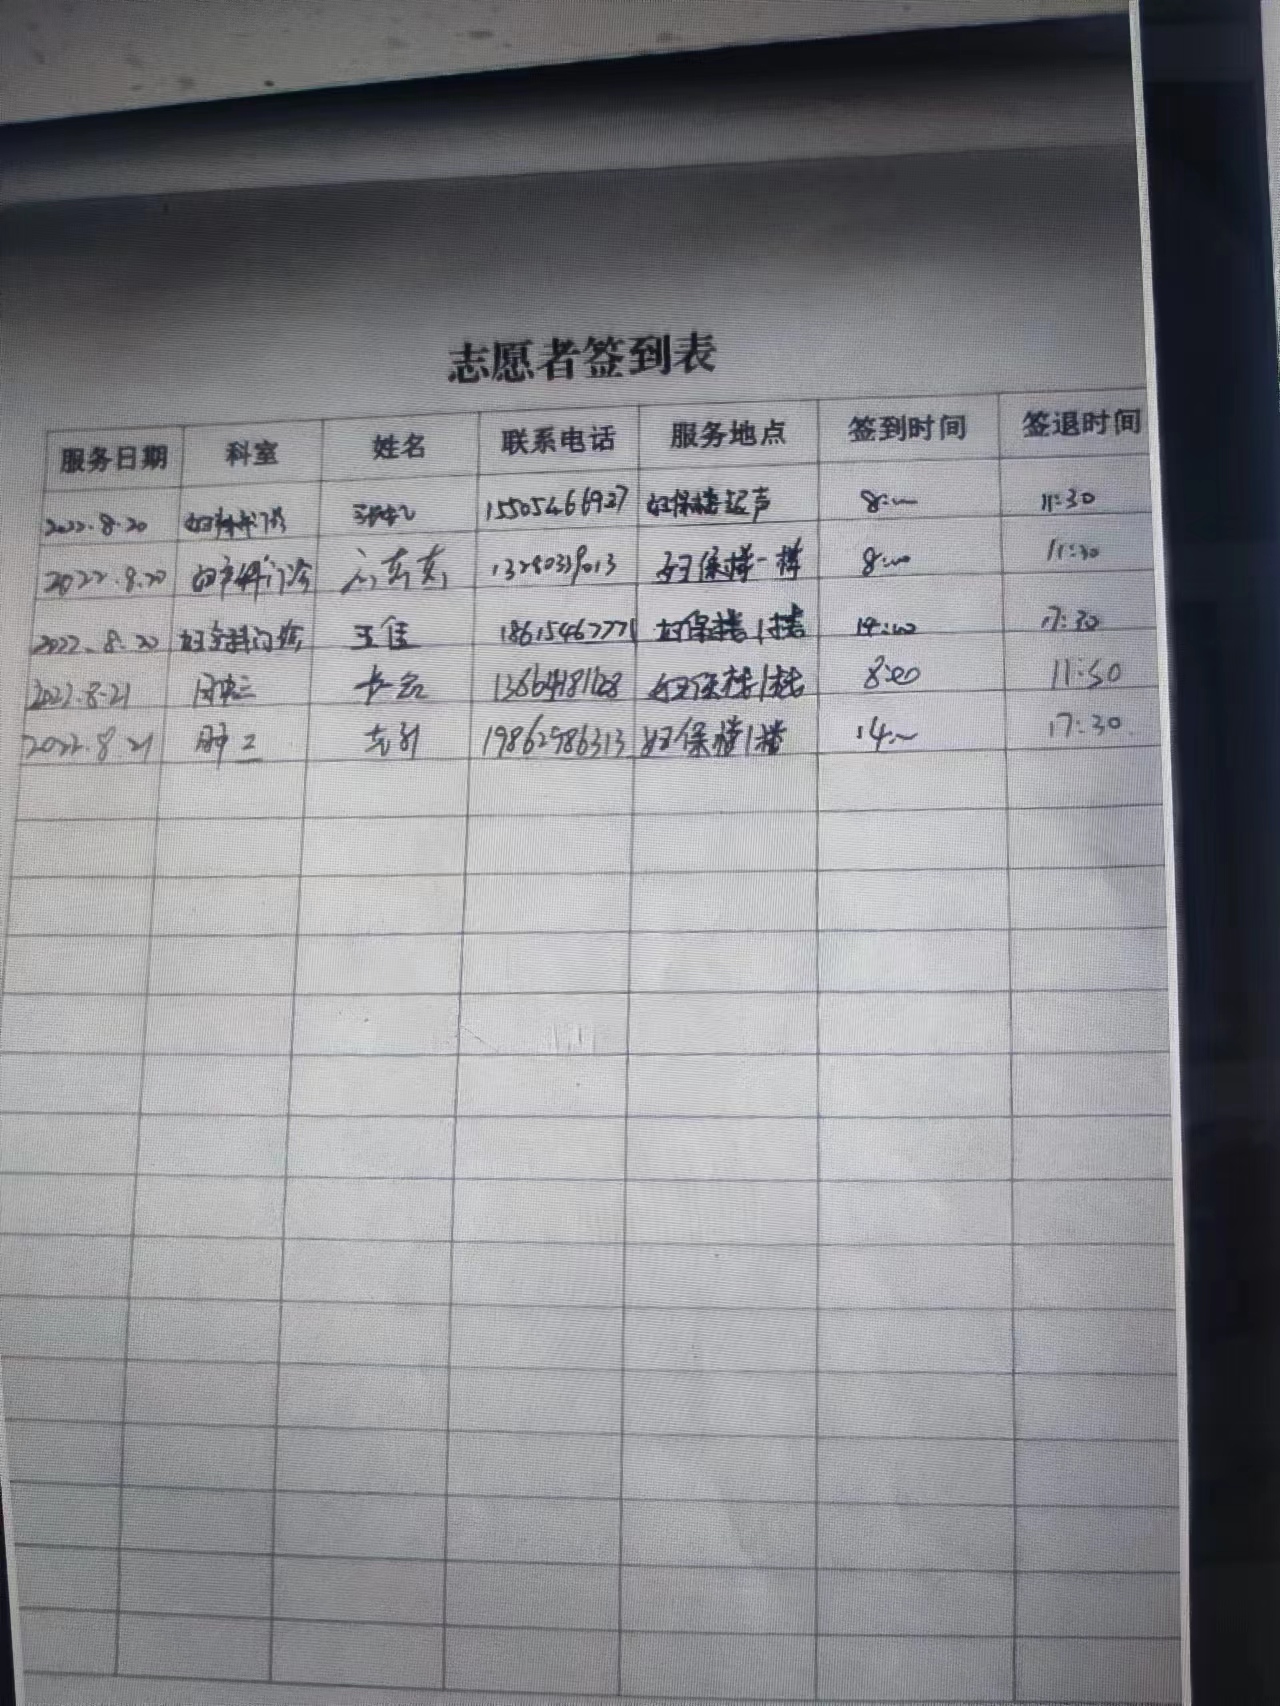 志愿者签到表
服务日期 科室 姓名 联系电话 服务地点 签到时间 签退时间
2022.8.20 15505466927 妇保楼超声 8:00 11:30
2022.8.20 妇产科门诊 妇保楼一楼 8:00 11:30
2022.8.20 妇产科门诊 王佳 妇保楼1楼 14:00 17:30
2022.8.21 妇保楼1楼 8:00 11:30
2022.8.21 肿二 19862986313 妇保楼1楼 14:00 17:30